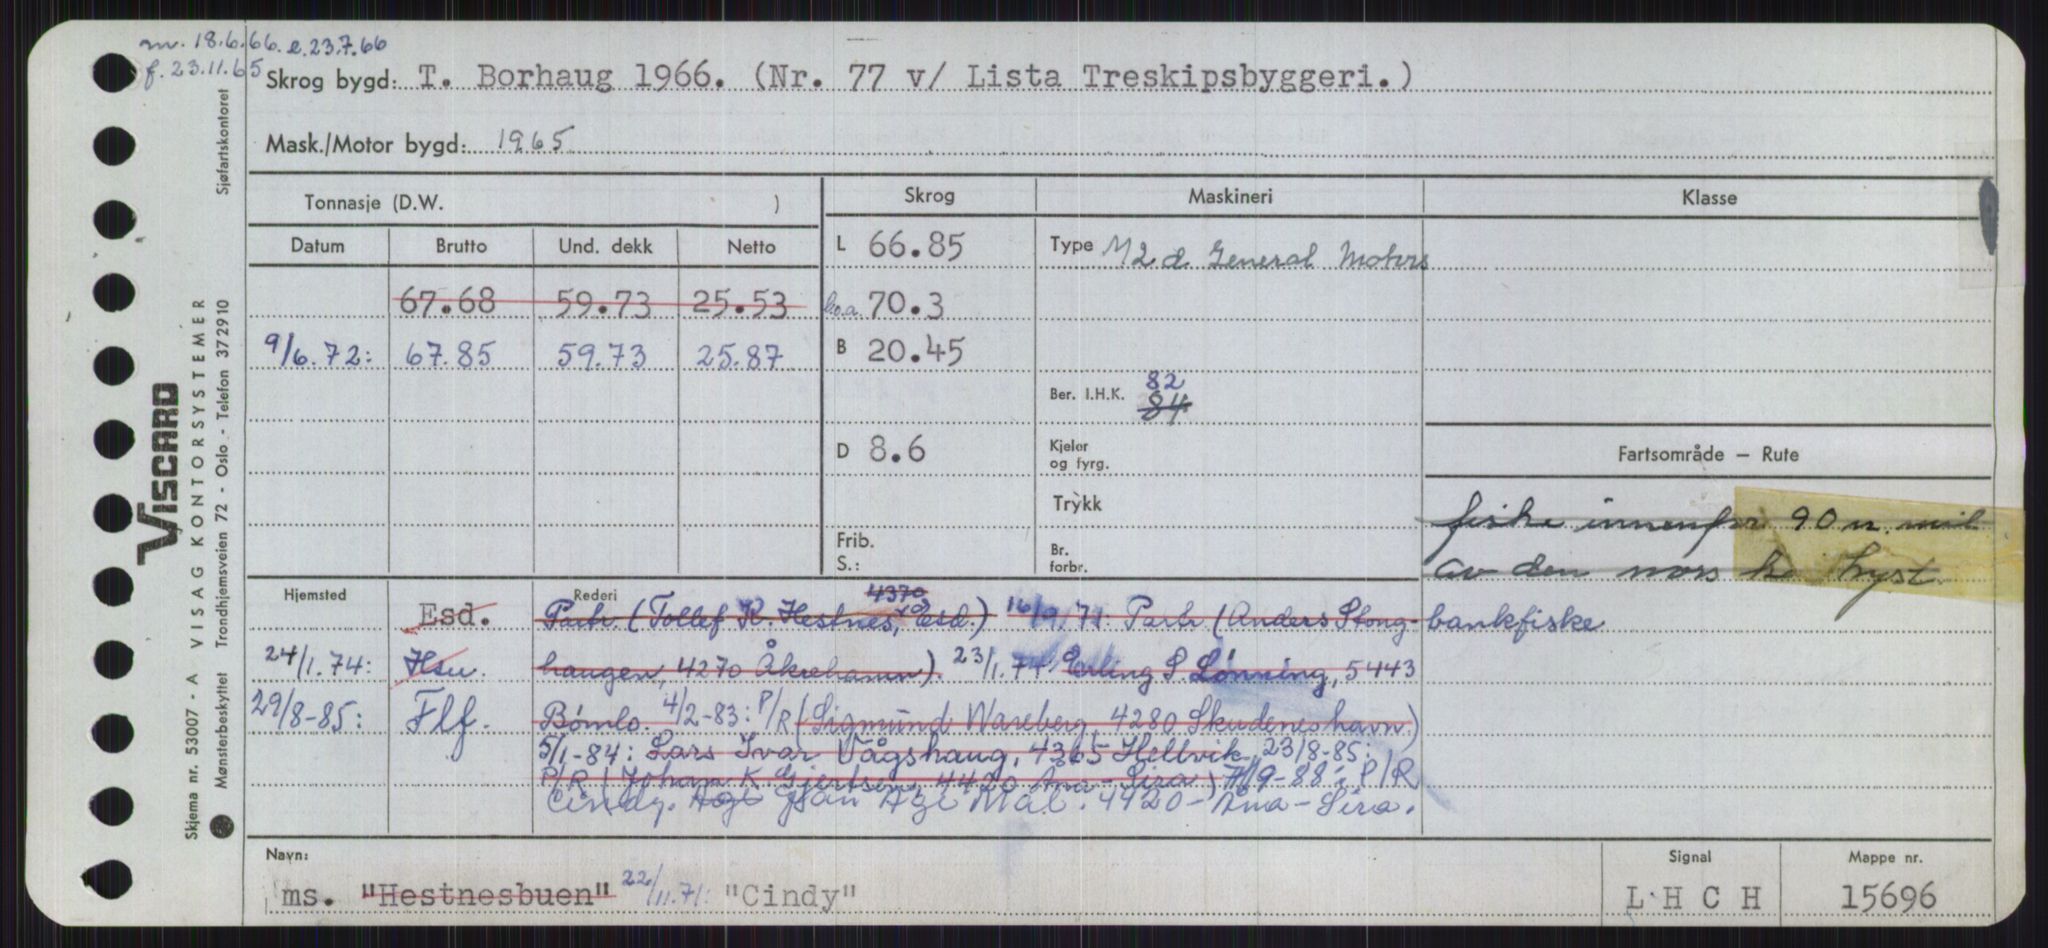 m. 18.6.66. e. 23.7.66
f. 23.11.65
Skrog bygd: T. Borhaug 1966. (Nr. 77 v/ Lista Treskipsbyggeri.)
Mask./Motor bygd: 1965
Tonnasje (D.W. )
Skrog
Maskineri
Klasse
Datum Brutto Und. dekk Netto
L 66.85
Type M2 d. General Motors
67.68 59.73 25.53
l.o.a. 70.3
9/6.72: 67.85 59.73 25.87
B 20.45
82
Ber. I.H.K. 84
D 8.6
Kjeler
og fyrg.
Fartsområde – Rute
Trykk
fiske innenfor 90 n. mil
Frib.
S.:
Br.
forbr.
av den norske kyst.
Hjemsted
Rederi
4370
Esd. Partr. (Tollef K. Hestnes, Esd.) 16/9.71: Partr. (Anders Stong-
bankfiske
24/1.74: Hsu. haugen, 4270 Åkrehamn). 23/1.74: Erling S. Lønning, 5443
29/8-85: Flf. Bømlo. 4/2-83: P/R (Sigmund Wareberg, 4280 Skudeneshavn.)
5/1-84: Lars Ivar Vågshaug, 4365 Hellvik. 23/8-85:
P/R (Johan K Gjertsen, 4420 Åna-Sira) 7/9-88: P/R
Cindy. Jan Åge Mål. 4420 - Åna-Sira.
Navn:
ms. "Hestnesbuen" 22/11.71: "Cindy"
Signal
L H C H
Mappe nr.
15696
Sjøfartskontoret
VISCARD
VISAG KONTORSYSTEMER
Trondhjemsveien 72 - Oslo - Telefon 372910
Skjema nr. 53007 - A
Mønsterbeskyttet